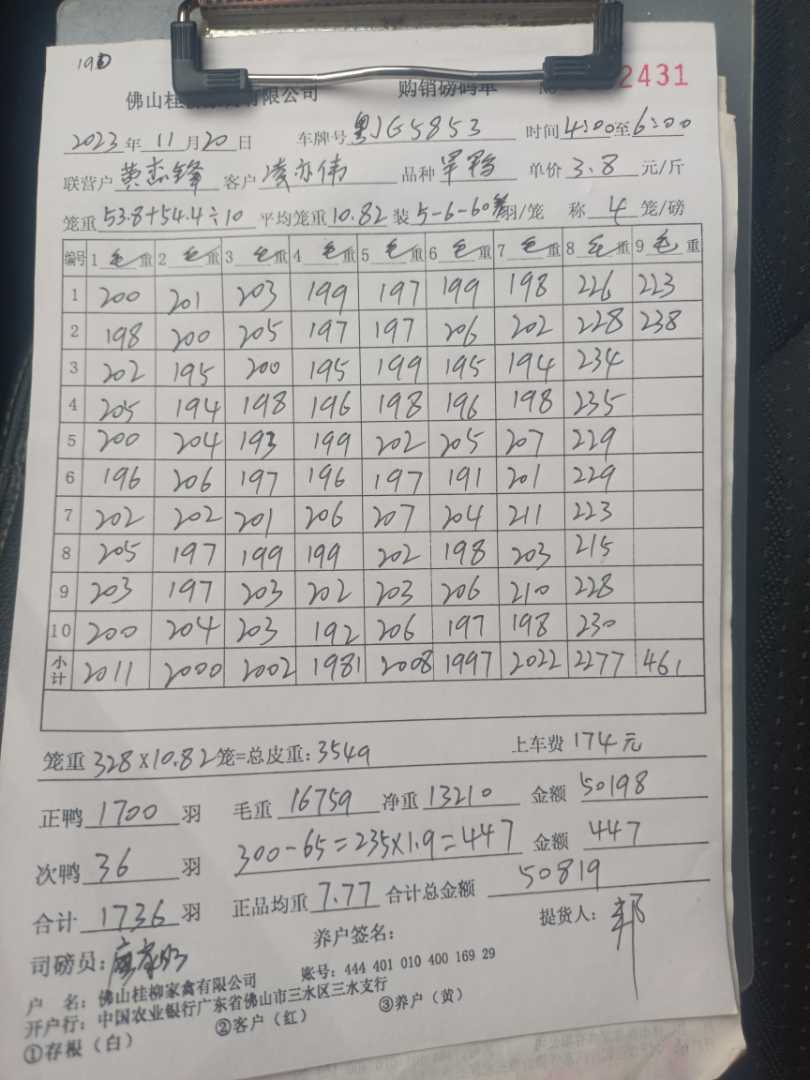 190
佛山桂 有限公司 购销磅码单 2431
2023年11月20日 车牌号粤JG5853 时间4:00至6:00
联营户 黄 锋 客户 凌亦伟 品种 单价3.8元/斤
笼重53.8+54.4÷10 平均笼重10.82 装5-6-60 羽/笼 称4笼/磅
编号 1毛重 2毛重 3毛重 4毛重 5毛重 6毛重 7毛重 8毛重 9毛重
1 200 201 203 199 197 199 198 226 223
2 198 200 205 197 197 206 202 228 238
3 202 195 200 195 199 195 194 234
4 205 194 198 196 198 196 198 235
5 200 204 193 199 202 205 207 229
6 196 206 197 196 197 191 201 229
7 202 202 201 206 207 204 211 223
8 205 197 199 199 202 198 203 215
9 203 197 203 202 203 206 210 228
10 200 204 203 192 206 197 198 230
小计 2011 2000 2002 1981 2008 1997 2022 2277 461
笼重328×10.82笼=总皮重:3549 上车费174元
正鸭1700羽 毛重16759 净重13210 金额50198
次鸭36羽 300-65=235×1.9=447 金额447
合计1736羽 正品均重7.77 合计总金额50819
司磅员: 养户签名: 提货人:郭
户 名:佛山桂柳家禽有限公司 账号:444 401 010 400 169 29
开户行:中国农业银行广东省佛山市三水区三水支行
①存根(白) ②客户(红) ③养户(黄)